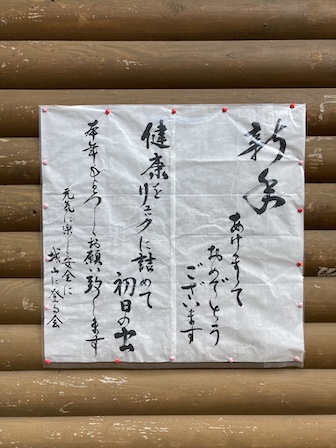 新春
あけまして
おめでとう
ございます
健康を
リュックに詰めて
初日の出
本年もよろしくお願い致します
元気に楽しく安全に
城山に登る会